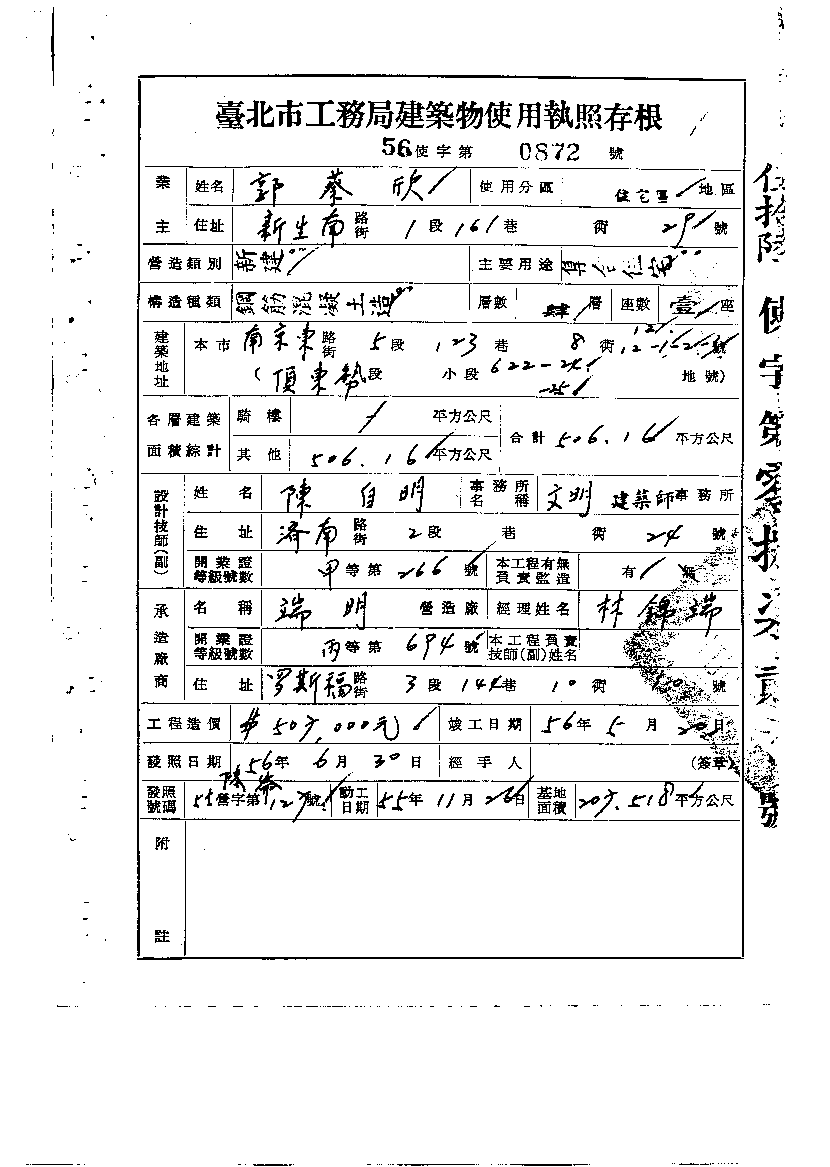 臺北市工務局建築物使用執照存根
56使字第 0872 號
業主 姓名 郭蔡欣 使用分區 住宅區 地區
住址 新生南 路街 1段 161巷 衖 29 號
營造類別 新建 主要用途 住宅
構造種類 鋼筋混凝土造 層數 肆層 座數 壹座
建築地址 本市 南京東 路街 5段 123巷 8衖 號
(頂東勢段 小段 622-24 地號)
-25
各層建築面積綜計 騎樓 平方公尺 合計 506.16 平方公尺
其他 506.16 平方公尺
設計技師(副) 姓名 陳自明 事務所名稱 文明 建築師事務所
住址 濟南 路街 2段 巷 衖 24 號
開業證等級號數 甲等第 266 號 本工程有無負責監造 有 無
承造廠商 名稱 瑞明 營造廠 經理姓名 林錦瑞
開業證等級號數 丙等第 694 號 本工程負責技師(副)姓名
住址 羅斯福 路街 3段 144巷 10衖 號
工程造價 竣工日期 56年 5月 20日
發照日期 56年 6月 30日 經手人 (簽章)
發照號碼 55營字第 號 動工日期 55年 11月 26日 基地面積 平方公尺
附註
伍拾陸使字第零捌柒貳號